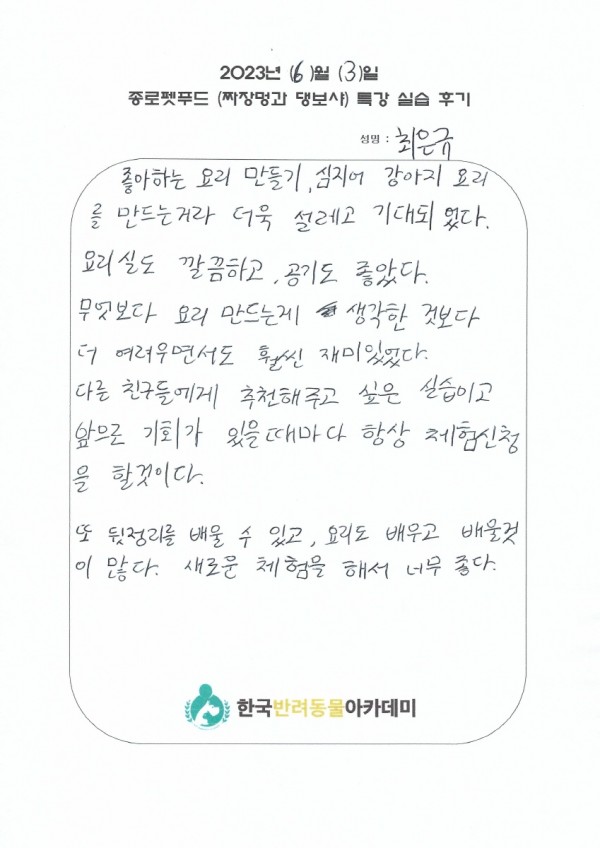 2023년 (6)월 (3)일
종로펫푸드 (짜장멍과 댕보샤) 특강 실습 후기
성명 : 최은규
좋아하는 요리 만들기, 심지어 강아지 요리
를 만드는거라 더욱 설레고 기대되었다.
요리실도 깔끔하고, 공기도 좋았다.
무엇보다 요리 만드는게 생각한 것보다
더 여려우면서도 훨씬 재미있었다.
다른 친구들에게 추천해주고 싶은 실습이고
앞므로 기회가 있을때마다 항상 체험신청
을 할것이다.
또 뒷정리를 배울 수 있고, 요리도 배우고 배울것
이 많다. 새로운 체험을 해서 너무 좋다.
한국반려동물아카데미